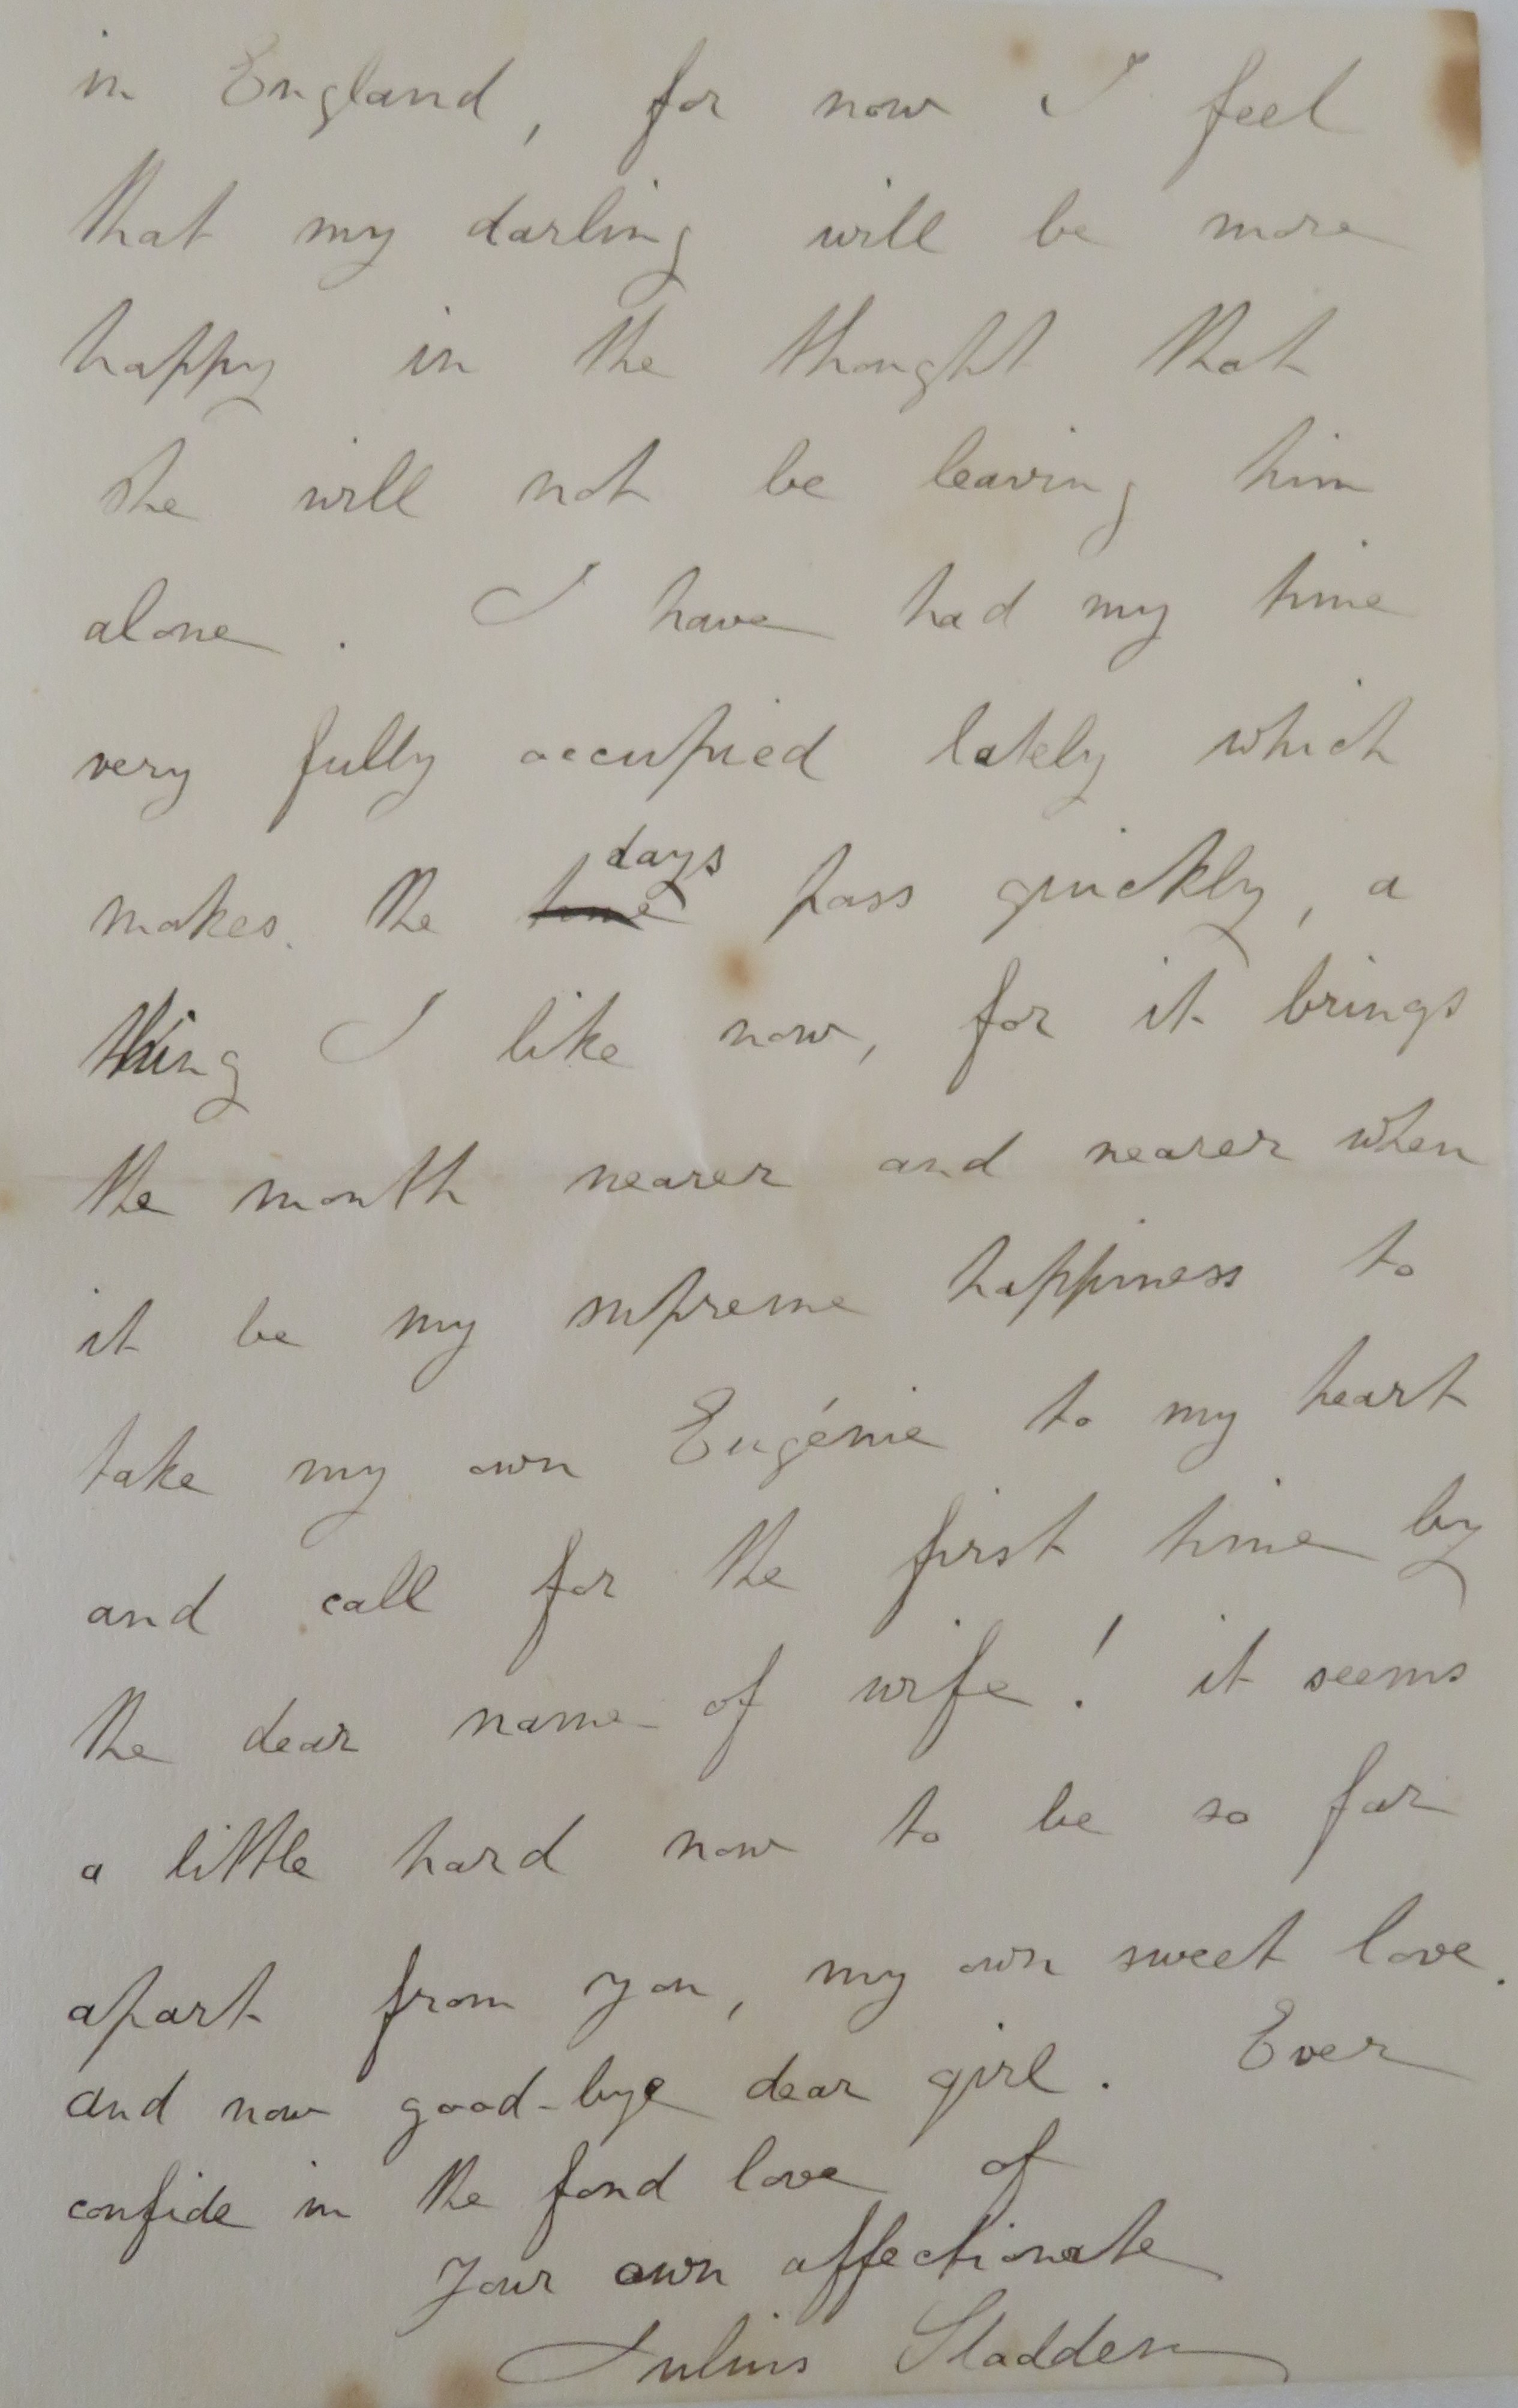 in England, for now I feel
that my darling will be more
happy in the thought that
she will not be leaving him
alone. I have had my time
very fully occupied lately which
days
makes the time pass quickly, a
thing I like now, for it brings
the month nearer and nearer when
it be my supreme happiness to
take my own Eugénie to my heart
and call for the first time by
the dear name of wife! it seems
a little hard now to be so far
apart from you, my own sweet love.
and now good-bye dear girl. Ever
confide in the fond love of
your own affectionate
Julius Sladden